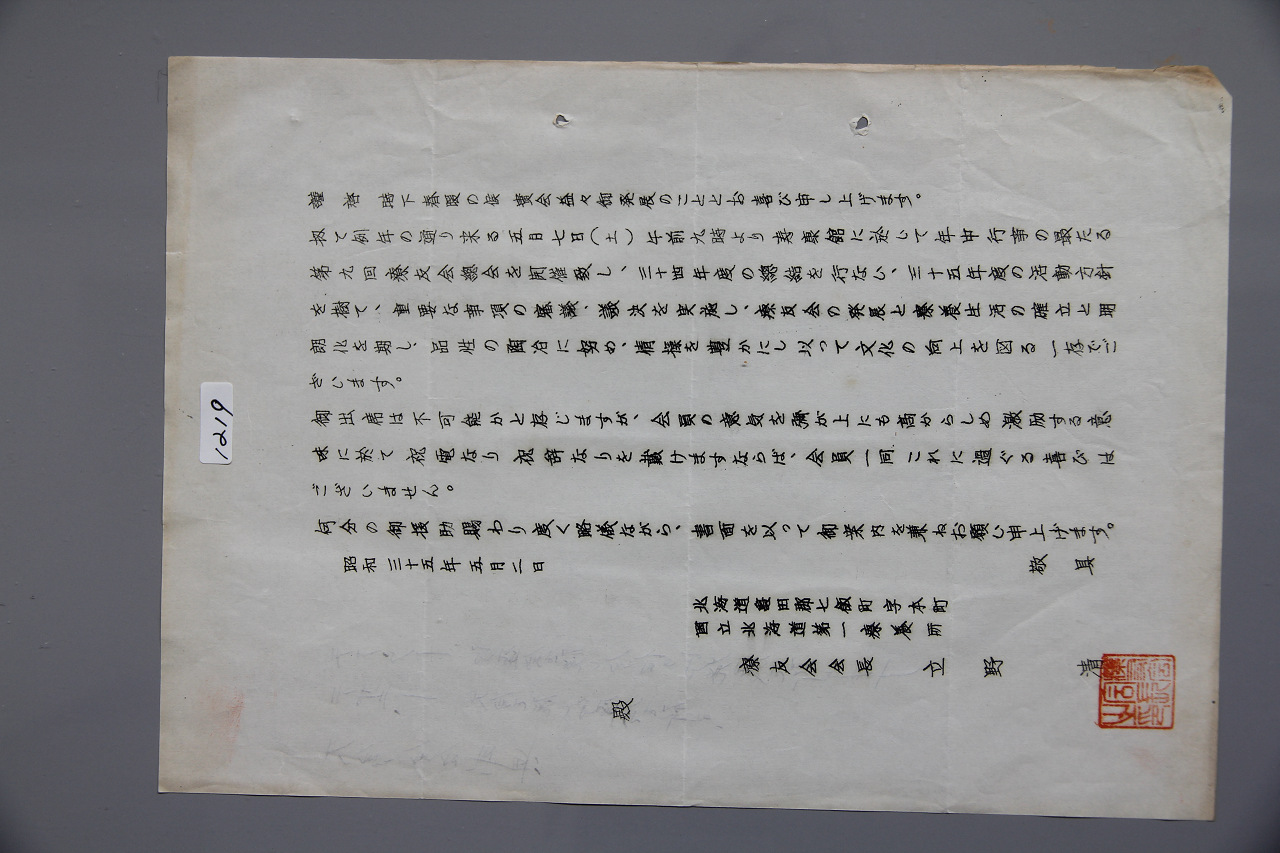 謹啓 時下春暖の候 貴会益々御発展のこととお喜び申し上げます。
扨て例年の通り来る五月七日(土) 午前九時より寿康館に於いて年中行事の最たる
第九回療友会總会を開催致し、三十四年度の總括を行ない、三十五年度の活動方針
を樹て、重要な事項の審議、議決を実施し、療友会の発展と療養生活の確立と明
朗化を期し、品性の陶冶に努め、情操を豊かにし以って文化の向上を図る一存でご
ざいます。
御出席は不可能かと存じますが、会員の意気を弥が上にも高からしめ激励する意
味に於て祝電なり祝辞なりを戴けますならば、会員一同これに過ぐる喜びは
ございません。
何分の御援助賜わり度く略儀ながら、書面を以って御案内を兼ねお願い申上げます。
敬具
昭和三十五年五月二日
北海道亀田郡七飯町字本町
国立北海道第一療養所
療友会会長 立野 清
殿
1219